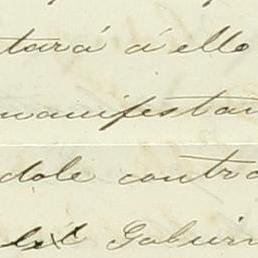 tará á ello
manifestan
dole contra
del Gobier